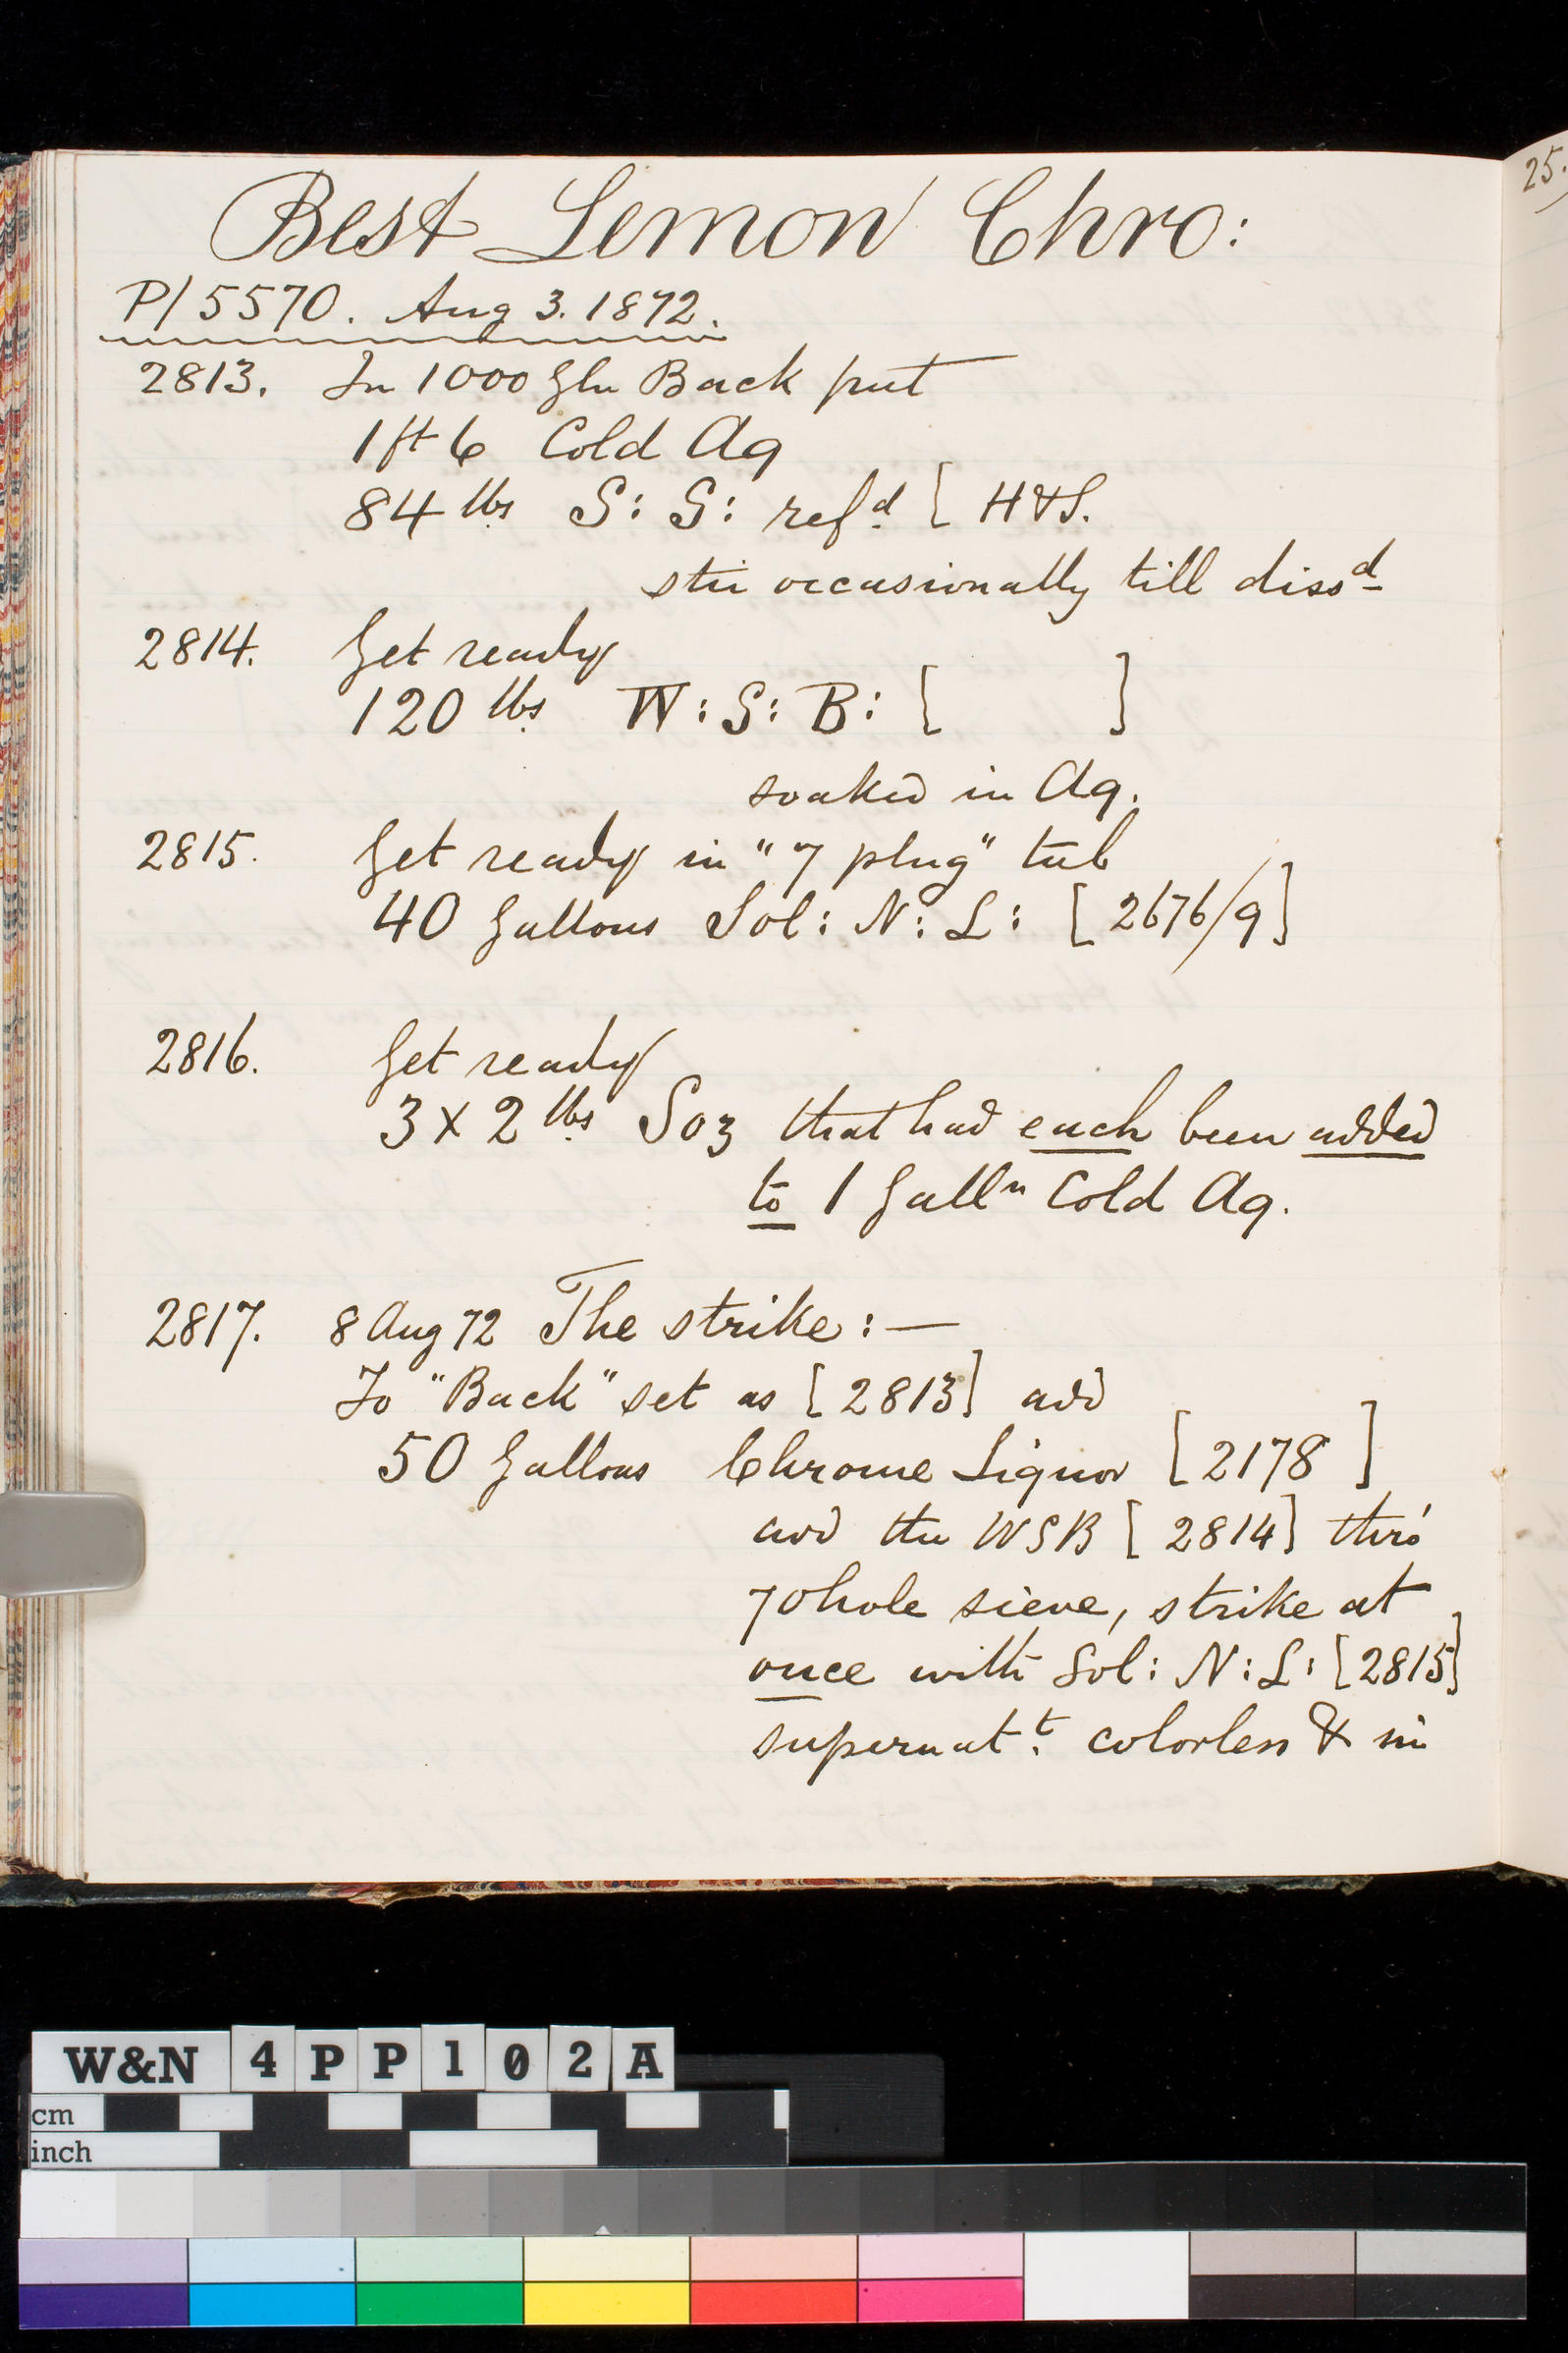 25.
Best Lemon Chro:
P/5570. Aug 3. 1872.
2813. In 1000 Gln Back put
1 ft 6 Cold Aq
84 lbs S: S: refd [ H&S.
stir occasionally till dissd
2814. Get ready
120 lbs W: S: B: [ ]
soaked in Aq.
2815. Get ready in "7 plug" tub
40 Gallons Sol: N: L: [2676/9]
2816. Get ready
3 x 2 lbs So3 that had each been added
to 1 Galln Cold Aq.
2817. 8 Aug 72 The strike: —
To "Back" set as [2813] add
50 Gallons Chrome Liquor [2178 ]
add the WSB [2814] thro'
70 hole sieve, strike at
once with Sol: N: L: [2815]
supernatt. colorless & in
W&N 4PP102A
cm
inch